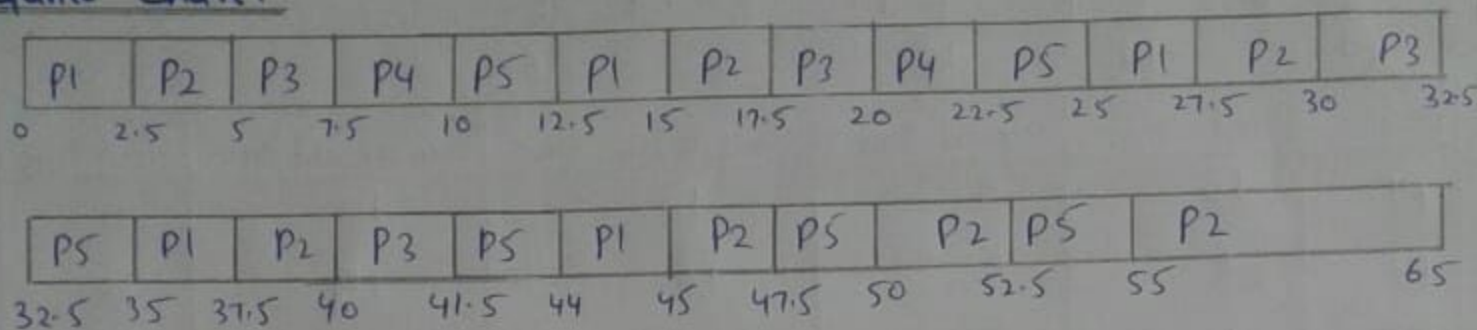 P1 P2 P3 P4 P5 P1 P2 P3 P4 P5 P1 P2 P3
0 2.5 5 7.5 10 12.5 15 17.5 20 22.5 25 27.5 30 32.5
P5 P1 P2 P3 P5 P1 P2 P5 P2 P5 P2
32.5 35 37.5 40 41.5 44 45 47.5 50 52.5 55 65